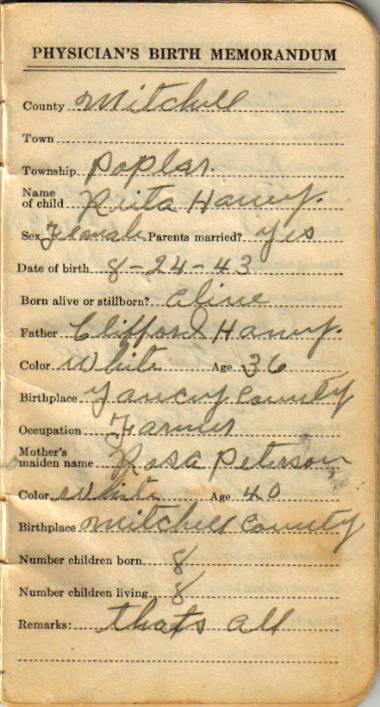 PHYSICIAN'S BIRTH MEMORANDUM
County Mitchell
Town
Township Poplar.
Name of child Reita Haney.
Sex Female Parents married? yes
Date of birth 8-24-43
Born alive or stillborn? alive
Father Clifford Haney.
Color White Age 36
Birthplace Yancey County
Occupation Farmer
Mother's maiden name Rosa Peterson
Color White Age 40
Birthplace Mitchell County
Number children born 8
Number children living 8
Remarks: thats all